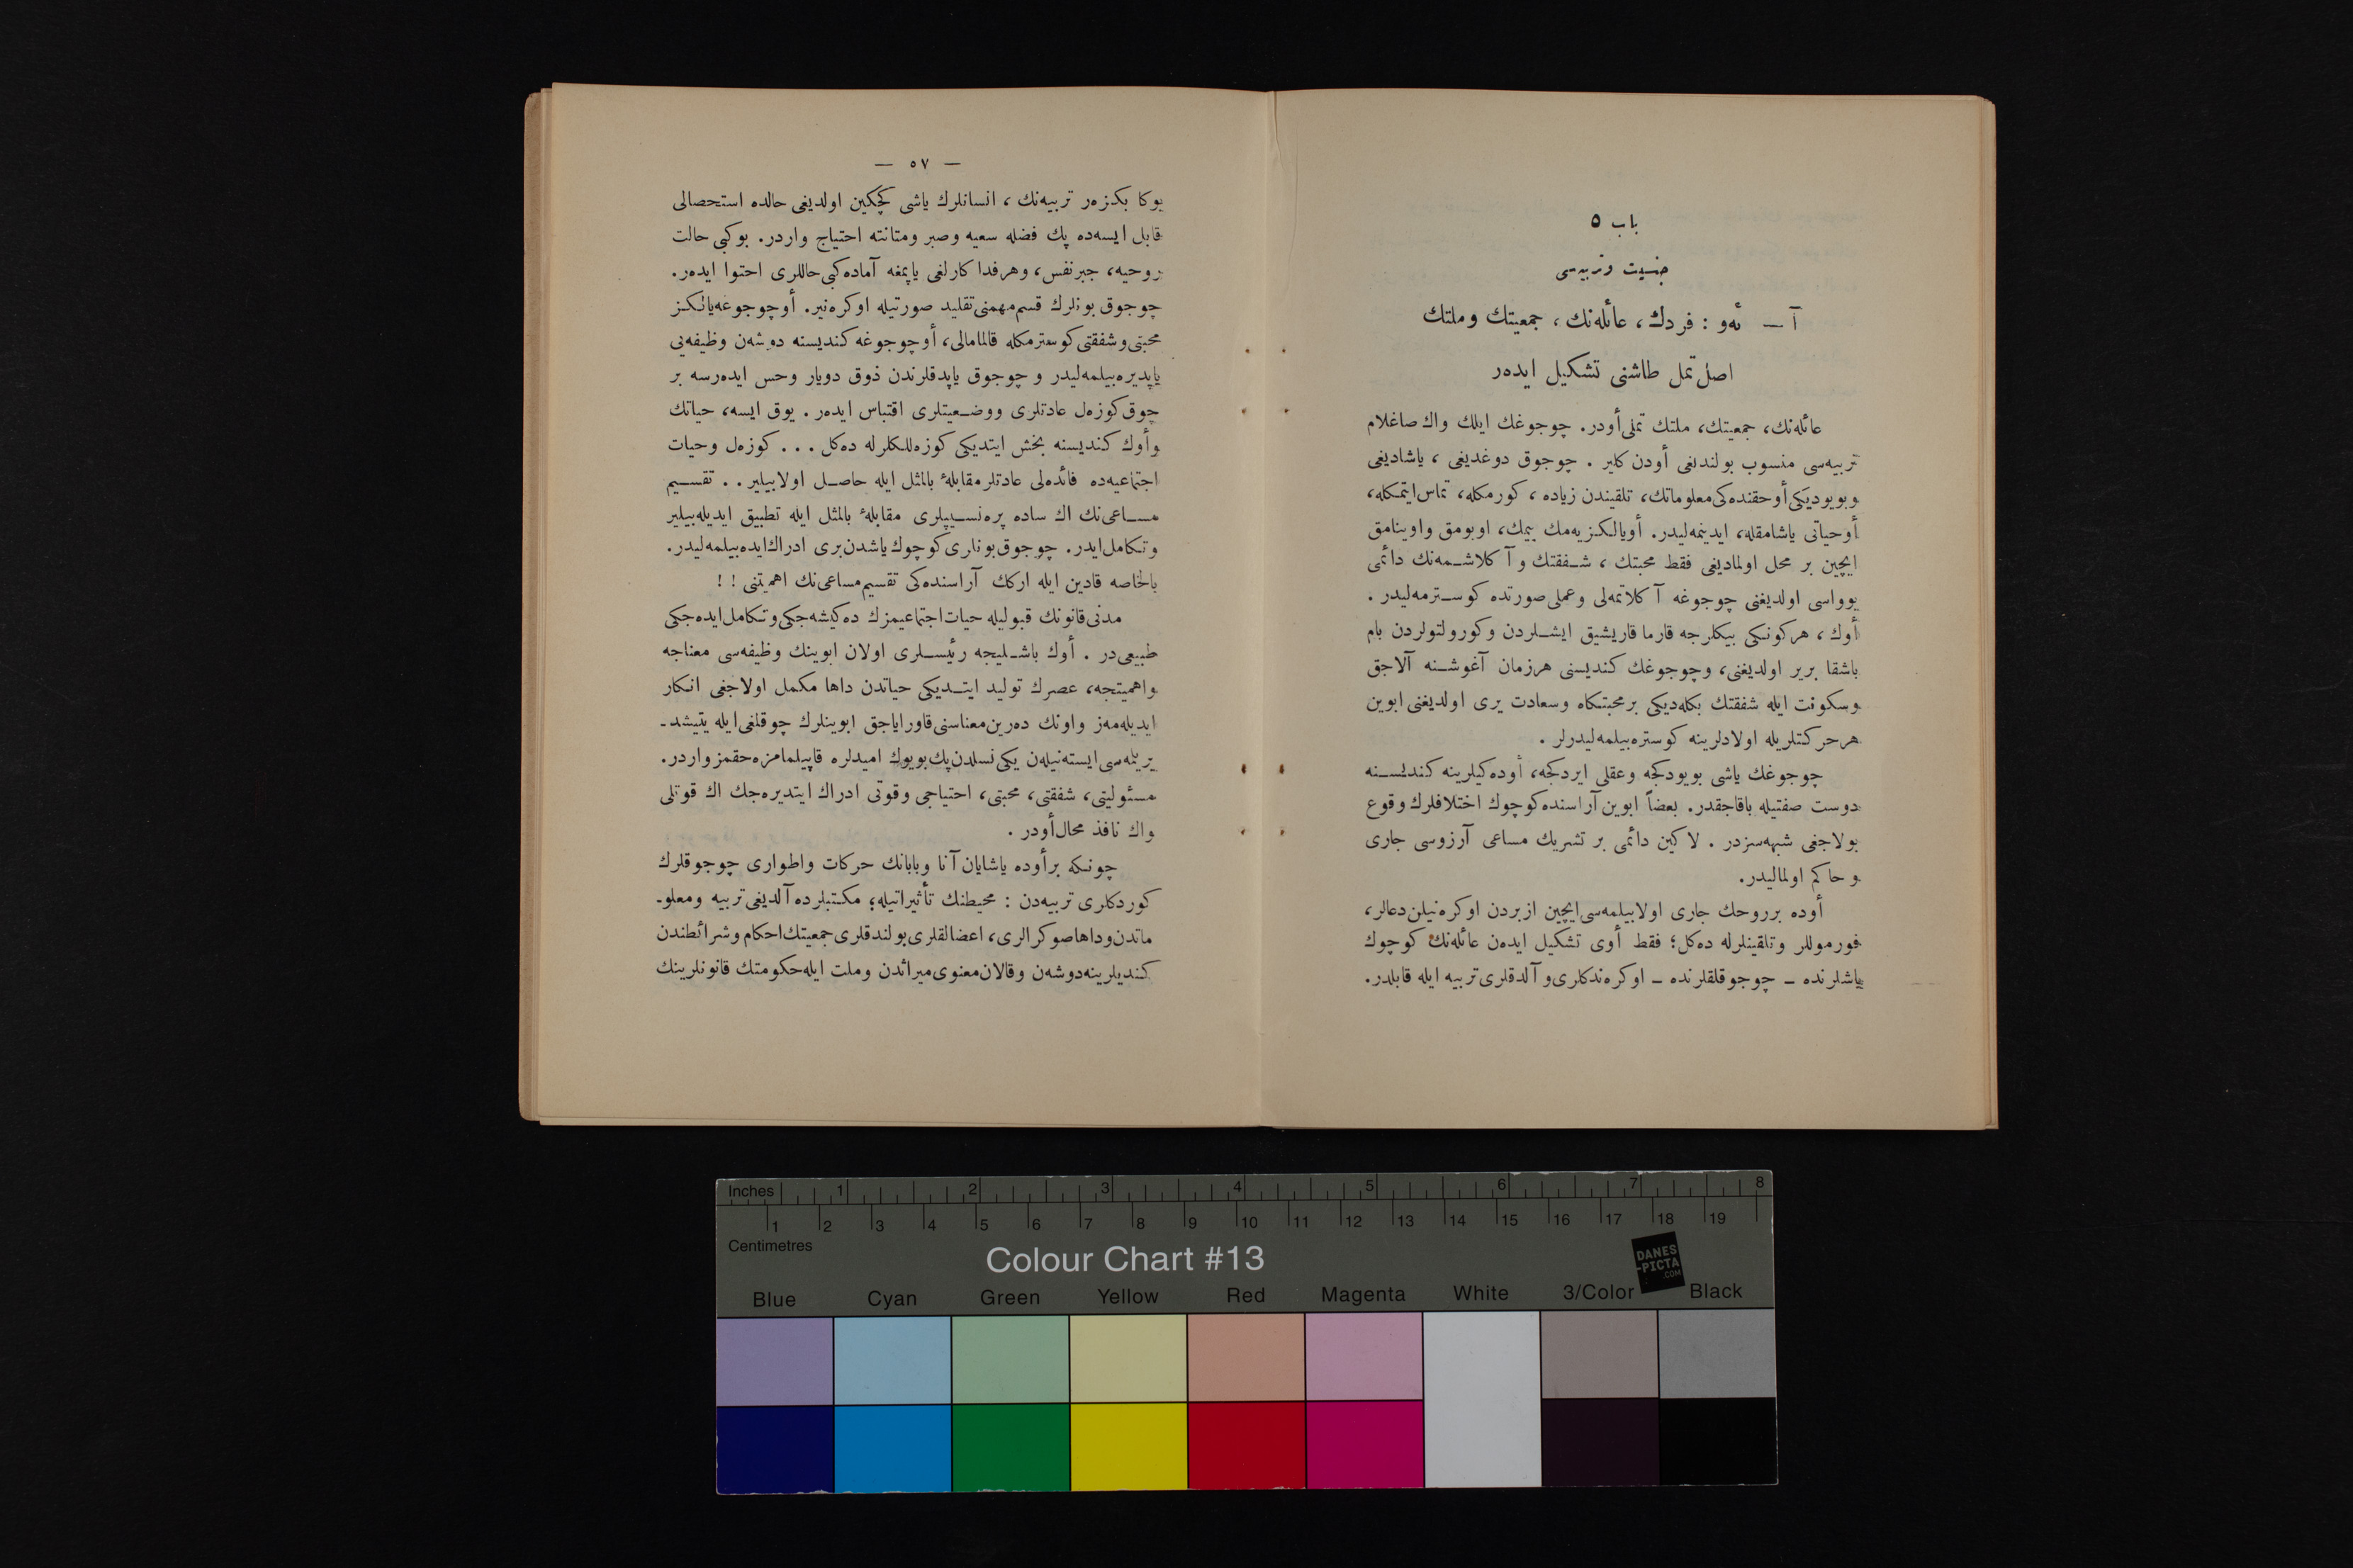 باب ٥
جنسیت وتربیه‌سی
آ — ئه‌و : فردك، عائله‌نك، جمعیتك وملتك
اصل تمل طاشنی تشكیل ایده‌ر
عائله‌نك، جمعیتك، ملتك تملی أودر. چوجوغك ایلك واك صاغلام
تربیه‌سی منسوب بولندیغی أودن كلیر . چوجوق دوغدیغی ، یاشادیغی
وبویودیكی أوحقنده‌كی معلوماتك، تلقیندن زیاده ، كورمكله، تماس ایتمكله،
أوحیاتی یاشامقله، ایدینمه‌لیدر. أویالكز یه‌مك ییمك، اویومق واوینامق
ایچین بر محل اولمادیغی فقط محبتك ، شفقتك و آكلاشمه‌نك دائمی
یوواسی اولدیغنی چوجوغه آكلاتمه‌لی وعملی صورتده كوسترمه‌لیدر .
أوك ، هركونكی بیكلرجه قارما قاریشیق ایشلردن وكورولتولردن بام
باشقا بریر اولدیغنی، وچوجوغك كندیسنی هرزمان آغوشنه آلاجق
وسكونت ایله شفقتك بكله‌دیكی برمحبتكاه وسعادت یری اولدیغنی ابوین
هرحركتلریله اولادلرینه كوستره‌بیلمه‌لیدرلر .
چوجوغك یاشی بویودكجه وعقلی ایردكجه، أوده‌كیلرینه كندیسنه
دوست صفتیله باقاجقدر. بعضاً ابوین آراسنده كوچوك اختلافلرك وقوع
بولاجغی شبهه‌سزدر . لاكین دائمی بر تشریك مساعی آرزوسی جاری
و حاكم اولمالیدر.
أوده برروحك جاری اولابیلمه‌سی ایچین ازبردن اوكره‌نیلن دعالر،
فورموللر وتلقینلرله ده‌كل؛ فقط أوی تشكیل ایده‌ن عائله‌نك كوچوك
یاشلرنده – چوجوقلقلرنده – اوكره‌ندكلری و آلدقلری تربیه ایله قابلدر.
— ٥٧ —
بوكا بكزه‌ر تربیه‌نك ، انسانلرك یاشی كچكین اولدیغی حالده استحصالی
قابل ایسه‌ده پك فضله سعیه وصبر ومتانته احتیاج واردر. بوكبی حالت
روحیه، جبرنفس، وهرفدا كارلغی یاپمغه آماده‌كبی حاللری احتوا ایده‌ر.
چوجوق بونلرك قسم مهمنی تقلید صورتیله اوكره‌نیر. أوچوجوغه یالكز
محبتی وشفقتی كوسترمكله قالمامالی، أوچوجوغه كندیسنه دوشه‌ن وظیفه‌یی
یاپدیره‌بیلمه‌لیدر و چوجوق یاپدقلرندن ذوق دویار وحس ایده‌رسه بر
چوق كوزه‌ل عادتلری ووضعیتلری اقتباس ایده‌ر . یوق ایسه، حیاتك
وأوك كندیسنه بخش ایتدیكی كوزه‌للكلرله ده‌كل . . . كوزه‌ل وحیات
اجتماعیه‌ده فائده‌لی عادتلر مقابلهٔ بالمثل ایله حاصل اولابیلیر . . تقسیم
مساعی‌نك اك ساده پره‌نسیپلری مقابلهٔ بالمثل ایله تطبیق ایدیله‌بیلیر
وتكامل ایدر. چوجوق بونلری كوچوك یاشدن بری ادراك ایده‌بیلمه‌لیدر.
بالخاصه قادین ایله اركك آراسنده‌كی تقسیم مساعی‌نك اهمیتنی ! !
مدنی قانونك قبولیله حیات اجتماعیمزك ده‌كیشه‌جكی وتكامل ایده‌جكی
طبیعی‌در . أوك باشلیجه رئیسلری اولان ابوینك وظیفه‌سی معناجه
واهمیتجه، عصرك تولید ایتدیكی حیاتدن داها مكمل اولاجغی انكار
ایدیله‌مه‌ز واونك ده‌رین معناسنی قاورایاجق ابوینلرك چوقلغی ایله یتیشد‌ـ
یریلمه‌سی ایسته‌نیله‌ن یكی نسلدن پك بویوك امیدلره قاپیلمامزه حقمز واردر.
مسئولیتی، شفقتی، محبتی، احتیاجی وقوتی ادراك ایتدیره‌جك اك قوتلی
واك نافذ محال أودر .
چونكه برأوده یاشایان آنا وبابانك حركات واطواری چوجوقلرك
كوردكلری تربیه‌دن : محیطنك تأثیراتیله؛ مكتبلرده آلدیغی تربیه ومعلوـ
ماتدن وداها صوكرالری، اعضالقلری بولندقلری جمعیتك احكام وشرائطندن
كندیلرینه دوشه‌ن وقالان معنوی میرائدن وملت ایله حكومتك قانونلرینك
Inches 1 2 3 4 5 6 7 8
1 2 3 4 5 6 7 8 9 10 11 12 13 14 15 16 17 18 19
Centimetres
Colour Chart #13
DANES
-PICTA
.COM
Blue Cyan Green Yellow Red Magenta White 3/Color Black